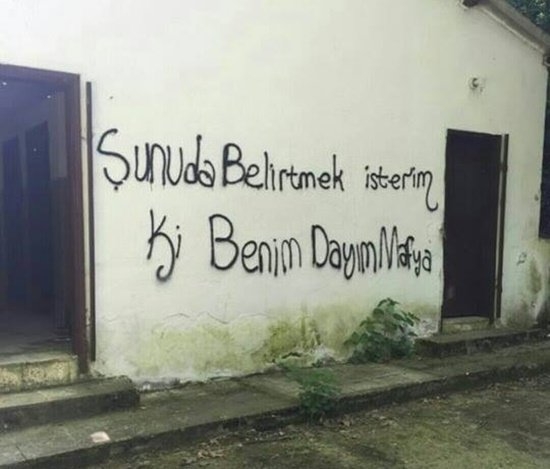 ŞunudaBelirtmek isterim
Ki Benim DayımMafya